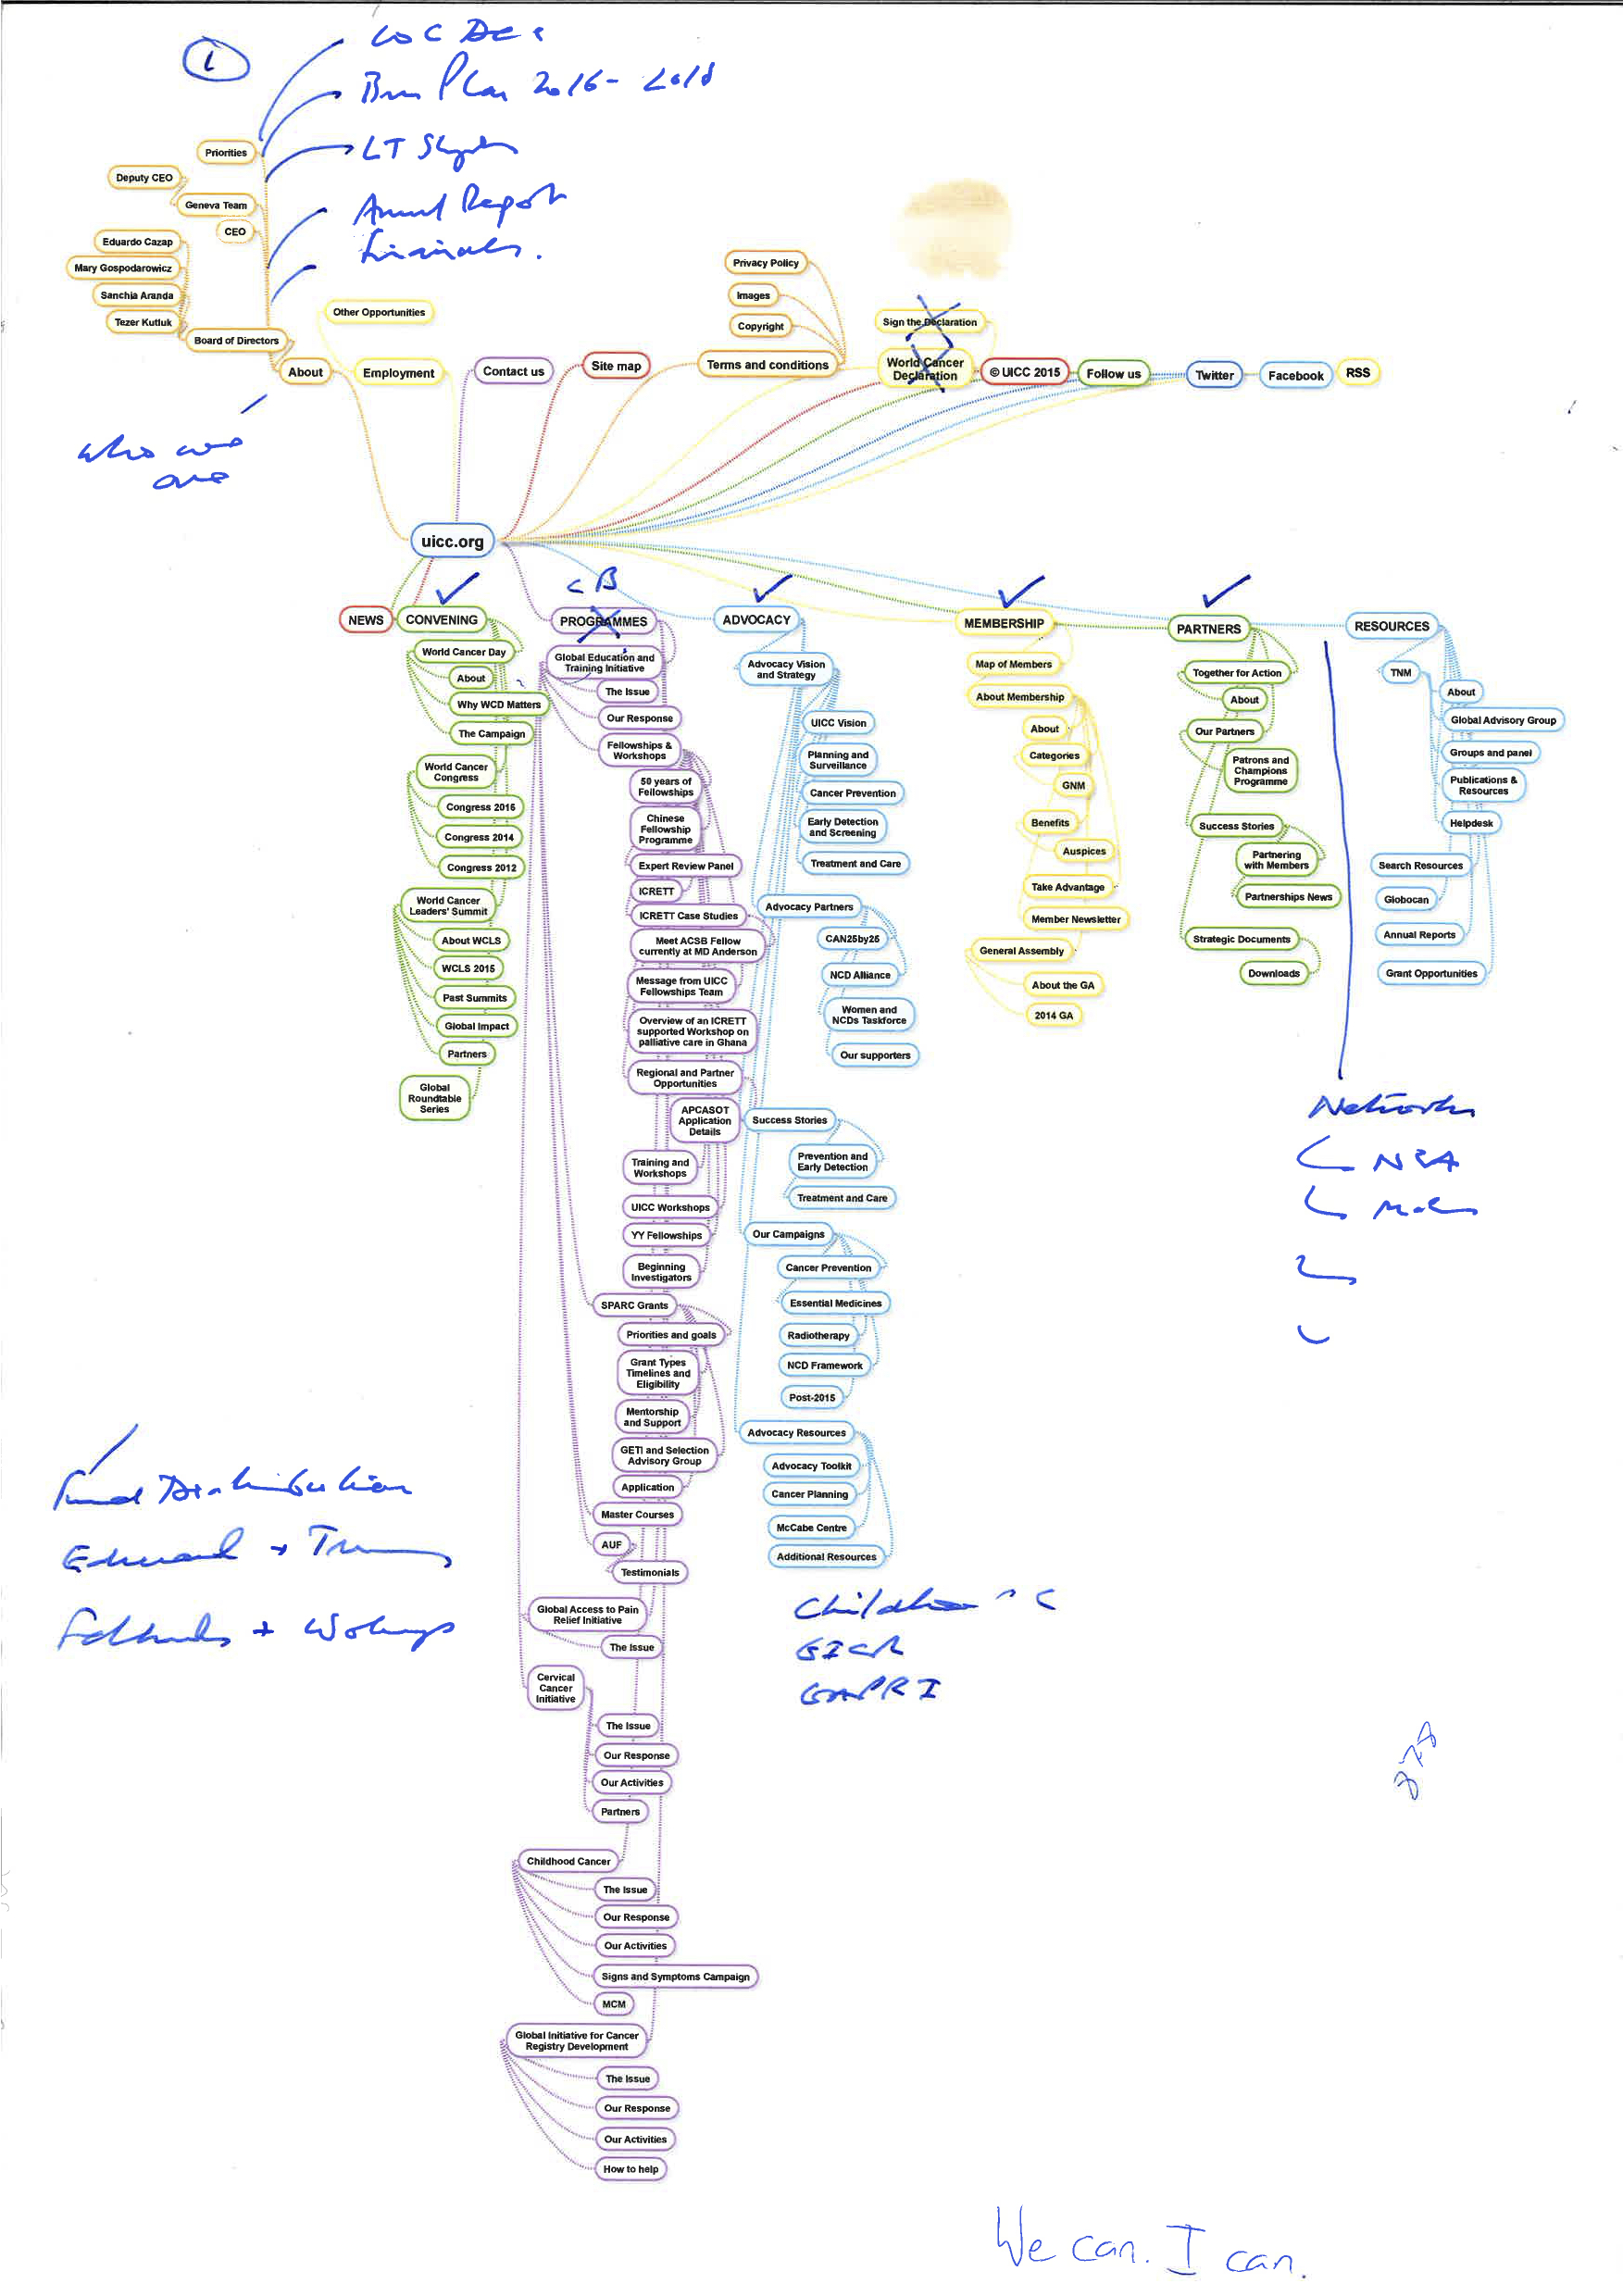 1
Bus Plan 2016-2018
LT
Annual Report
Financials.
Priorities
Deputy CEO
Geneva Team
CEO
Eduardo Cazap
Mary Gospodarowicz
Sanchia Aranda
Tezer Kutluk
Board of Directors
About
Other Opportunities
Employment
Contact us
Site map
Privacy Policy
Images
Copyright
Terms and conditions
Sign the Declaration
World Cancer
Declaration
© UICC 2015
Follow us
Twitter
Facebook
RSS
who we
are
uicc.org
NEWS
CONVENING
World Cancer Day
About
Why WCD Matters
The Campaign
World Cancer
Congress
Congress 2016
Congress 2014
Congress 2012
World Cancer
Leaders' Summit
About WCLS
WCLS 2015
Past Summits
Global Impact
Partners
Global
Roundtable
Series
CB
PROGRAMMES
Global Education and
Training Initiative
The Issue
Our Response
Fellowships &
Workshops
50 years of
Fellowships
Chinese
Fellowship
Programme
Expert Review Panel
ICRETT
ICRETT Case Studies
Meet ACSB Fellow
currently at MD Anderson
Message from UICC
Fellowships Team
Overview of an ICRETT
supported Workshop on
palliative care in Ghana
Regional and Partner
Opportunities
APCASOT
Application
Details
Training and
Workshops
UICC Workshops
YY Fellowships
Beginning
Investigators
SPARC Grants
Priorities and goals
Grant Types
Timelines and
Eligibility
Mentorship
and Support
GETI and Selection
Advisory Group
Application
Master Courses
AUF
Testimonials
Global Access to Pain
Relief Initiative
The Issue
Cervical
Cancer
Initiative
The Issue
Our Response
Our Activities
Partners
Childhood Cancer
The Issue
Our Response
Our Activities
Signs and Symptoms Campaign
MCM
Global Initiative for Cancer
Registry Development
The Issue
Our Response
Our Activities
How to help
ADVOCACY
Advocacy Vision
and Strategy
UICC Vision
Planning and
Surveillance
Cancer Prevention
Early Detection
and Screening
Treatment and Care
Advocacy Partners
CAN25by25
NCD Alliance
Women and
NCDs Taskforce
Our supporters
Success Stories
Prevention and
Early Detection
Treatment and Care
Our Campaigns
Cancer Prevention
Essential Medicines
Radiotherapy
NCD Framework
Post-2015
Advocacy Resources
Advocacy Toolkit
Cancer Planning
McCabe Centre
Additional Resources
GICR
GAPRI
MEMBERSHIP
Map of Members
About Membership
About
Categories
GNM
Benefits
Auspices
Take Advantage
Member Newsletter
General Assembly
About the GA
2014 GA
PARTNERS
Together for Action
About
Our Partners
Patrons and
Champions
Programme
Success Stories
Partnering
with Members
Partnerships News
Strategic Documents
Downloads
RESOURCES
TNM
About
Global Advisory Group
Groups and panel
Publications &
Resources
Helpdesk
Search Resources
Globocan
Annual Reports
Grant Opportunities
Networks
Fund Distribution
We can. I can.